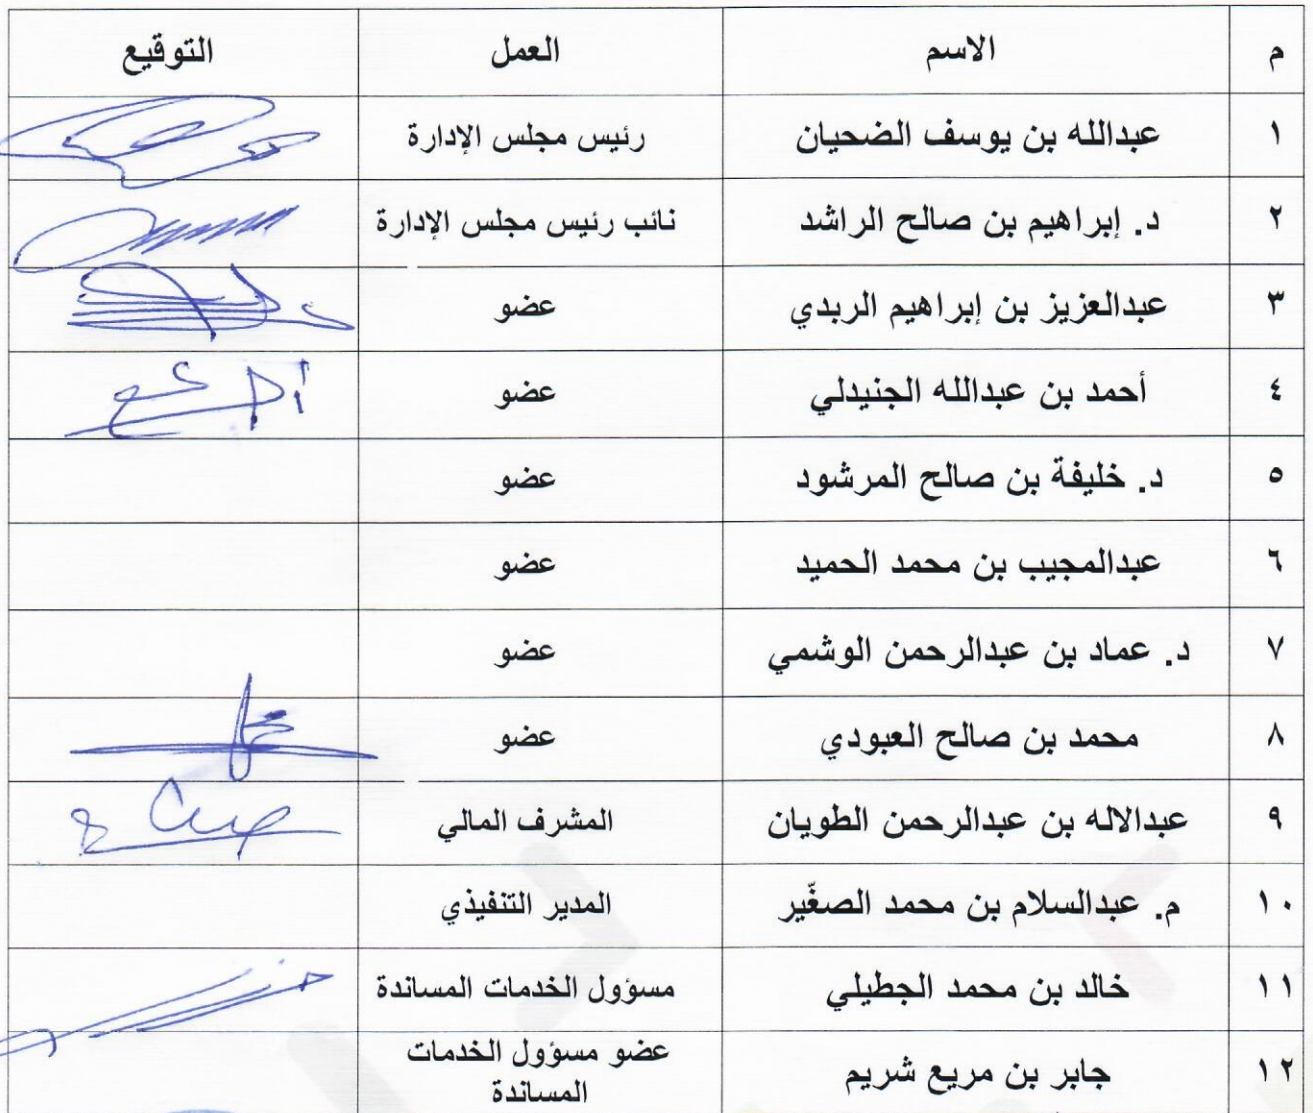 م الاسم العمل التوقيع
١ عبدالله بن يوسف الضحيان رئيس مجلس الإدارة
٢ د. إبراهيم بن صالح الراشد نائب رئيس مجلس الإدارة
٣ عبدالعزيز بن إبراهيم الربدي عضو
٤ أحمد بن عبدالله الجنيدلي عضو
٥ د. خليفة بن صالح المرشود عضو
٦ عبدالمجيب بن محمد الحميد عضو
٧ د. عماد بن عبدالرحمن الوشمي عضو
٨ محمد بن صالح العبودي عضو
٩ عبدالاله بن عبدالرحمن الطويان المشرف المالي
١٠ م. عبدالسلام بن محمد الصغّير المدير التنفيذي
١١ خالد بن محمد الجطيلي مسؤول الخدمات المساندة
١٢ جابر بن مريع شريم عضو مسؤول الخدمات
المساندة